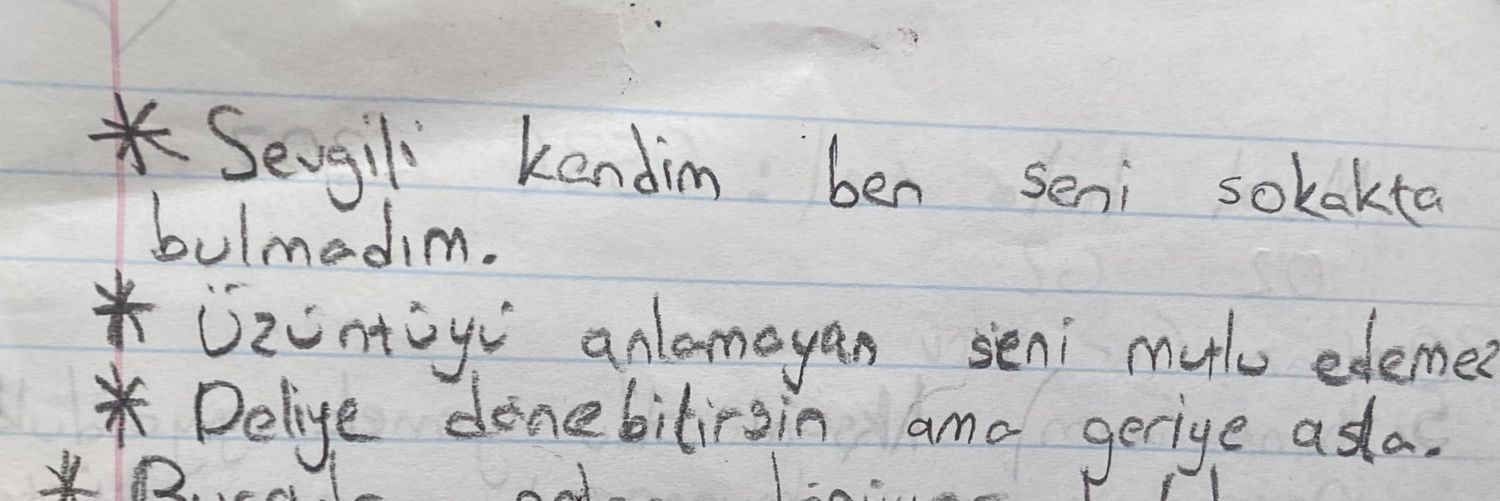 * Sevgili kendim ben seni sokakta
bulmadım.
* Üzüntüyü anlamayan seni mutlu edemez
* Deliye dönebilirsin ama geriye asla.
*